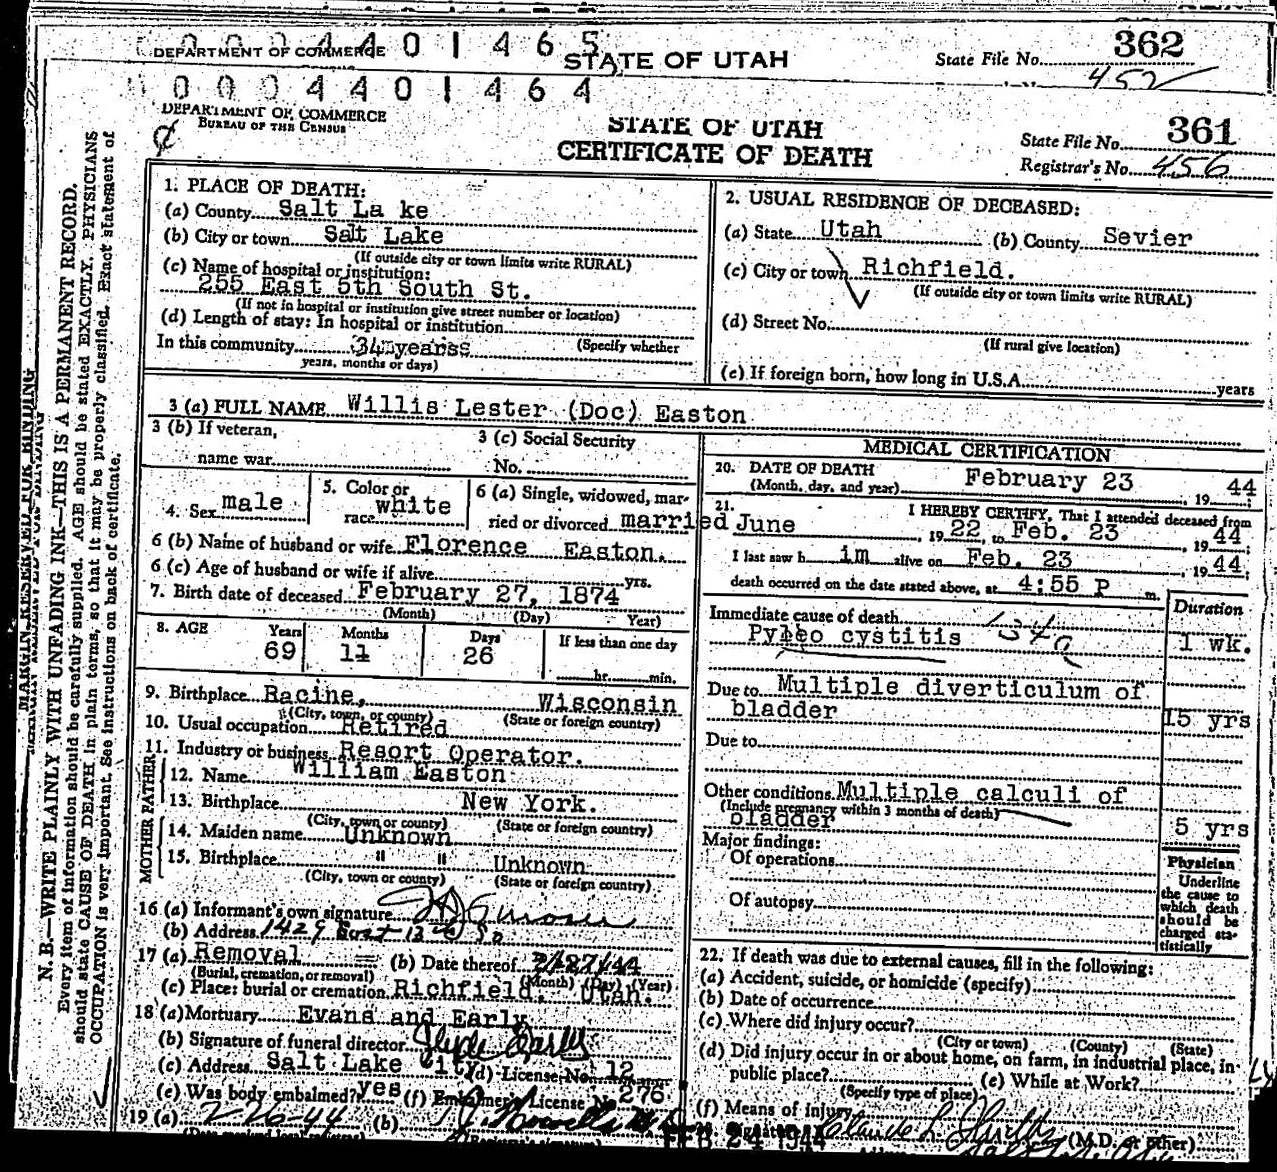 0 0 0 4 4 0 1 4 6 5
DEPARTMENT OF COMMERCE
STATE OF UTAH
State File No. 362
452
0 0 0 4 4 0 1 4 6 4
DEPARTMENT OF COMMERCE
BUREAU OF THE CENSUS
STATE OF UTAH
CERTIFICATE OF DEATH
State File No. 361
Registrar's No. 456
MARGIN RESERVED FOR BINDING
N. B.—WRITE PLAINLY WITH UNFADING INK—THIS IS A PERMANENT RECORD.
Every item of information should be carefully supplied. AGE should be stated EXACTLY. PHYSICIANS
should state CAUSE OF DEATH in plain terms, so that it may be properly classified. Exact statement of
OCCUPATION is very important. See instructions on back of certificate.
1. PLACE OF DEATH:
(a) County Salt La ke
(b) City or town Salt Lake
(If outside city or town limits write RURAL)
(c) Name of hospital or institution:
255 East 5th South St.
(If not in hospital or institution give street number or location)
(d) Length of stay: In hospital or institution
(Specify whether
In this community 34 years
years, months or days)
2. USUAL RESIDENCE OF DECEASED:
(a) State Utah (b) County Sevier
(c) City or town Richfield.
(If outside city or town limits write RURAL)
(d) Street No.
(If rural give location)
(e) If foreign born, how long in U.S.A. years
3 (a) FULL NAME Willis Lester (Doc) Easton
3 (b) If veteran,
name war
3 (c) Social Security
No.
4. Sex male
5. Color or
race white
6 (a) Single, widowed, mar-
ried or divorced married
6 (b) Name of husband or wife Florence Easton.
6 (c) Age of husband or wife if alive yrs.
7. Birth date of deceased February 27, 1874
(Month) (Day) Year)
8. AGE Years Months Days If less than one day
69 11 26
hr. min.
9. Birthplace Racine, Wisconsin
(City, town, or county) (State or foreign country)
10. Usual occupation Retired
11. Industry or business Resort Operator.
FATHER
12. Name William Easton
13. Birthplace New York.
(City, town or county) (State or foreign country)
MOTHER
14. Maiden name Unknown
15. Birthplace " " Unknown
(City, town or county) (State or foreign country)
16 (a) Informant's own signature
(b) Address 1429 East 13th So
17 (a) Removal (b) Date thereof 2/27/44
(Burial, cremation, or removal) (Month) (Day) (Year)
(c) Place: burial or cremation Richfield, Utah.
18 (a) Mortuary Evans and Early
(b) Signature of funeral director Clyde Early
(c) Address Salt Lake City (d) License No. 12
(e) Was body embalmed? yes (f) Embalmer's License No. 276
19 (a) 2-26-44 (b)
MEDICAL CERTIFICATION
20. DATE OF DEATH
(Month, day, and year) February 23, 19 44
21. I HEREBY CERTIFY, That I attended deceased from
June, 19 22, to Feb. 23, 19 44
I last saw h im alive on Feb. 23 19 44
death occurred on the date stated above, at 4:55 P m.
Duration
Immediate cause of death 134a
Pyleo cystitis 1 wk.
Due to Multiple diverticulum of
bladder 15 yrs
Due to
Other conditions Multiple calculi of
(Include pregnancy within 3 months of death)
bladder 5 yrs
Major findings:
Of operations
Of autopsy
Physician
Underline
the cause to
which death
should be
charged sta-
tistically
22. If death was due to external causes, fill in the following:
(a) Accident, suicide, or homicide (specify)
(b) Date of occurrence
(c) Where did injury occur?
(City or town) (County) (State)
(d) Did injury occur in or about home, on farm, in industrial place, in
public place? (e) While at Work?
(Specify type of place)
(f) Means of injury
FEB 24 1944
(M.D. or other)